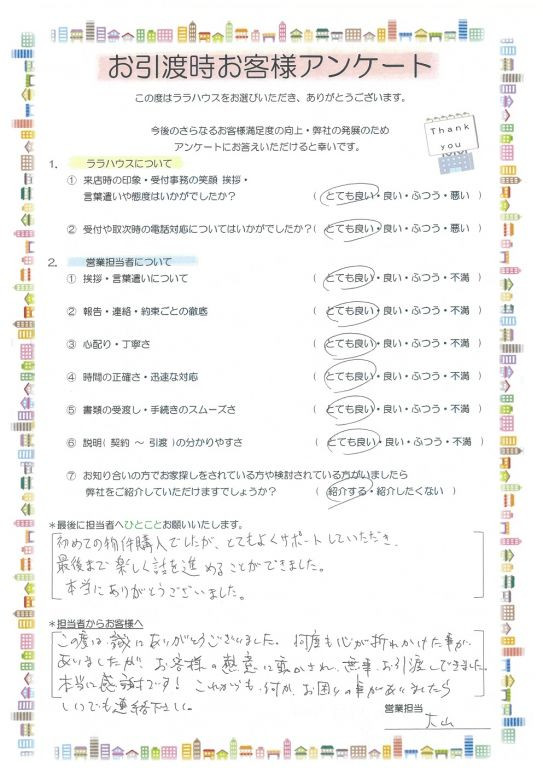 お引渡時お客様アンケート
この度はララハウスをお選びいただき、ありがとうございます。
今後のさらなるお客様満足度の向上・弊社の発展のため
アンケートにお答えいただけると幸いです。
Thank
you
1. ララハウスについて
① 来店時の印象・受付事務の笑顔 挨拶・
言葉遣いや態度はいかがでしたか? ( とても良い・良い・ふつう・悪い )
② 受付や取次時の電話対応についてはいかがでしたか? ( とても良い・良い・ふつう・悪い )
2. 営業担当者について
① 挨拶・言葉遣いについて ( とても良い・良い・ふつう・不満 )
② 報告・連絡・約束ごとの徹底 ( とても良い・良い・ふつう・不満 )
③ 心配り・丁寧さ ( とても良い・良い・ふつう・不満 )
④ 時間の正確さ・迅速な対応 ( とても良い・良い・ふつう・不満 )
⑤ 書類の受渡し・手続きのスムーズさ ( とても良い・良い・ふつう・不満 )
⑥ 説明( 契約 ~ 引渡 )の分かりやすさ ( とても良い・良い・ふつう・不満 )
⑦ お知り合いの方でお家探しをされている方や検討されている方がいましたら
弊社をご紹介していただけますでしょうか? ( 紹介する・紹介したくない )
*最後に担当者へひとことお願いいたします。
初めての物件購入でしたが、とてもよくサポートしていただき、
最後まで楽しく話を進めることができました。
本当にありがとうございました。
*担当者からお客様へ
この度は、誠にありがとうございました。何度も心が折れかけた事が
ありましたが、お客様の熱意に動かされ、無事お引渡しできました。
本当に感謝です! これからも、何か、お困りの事がありましたら
いつでも連絡下さい。
営業担当
大山